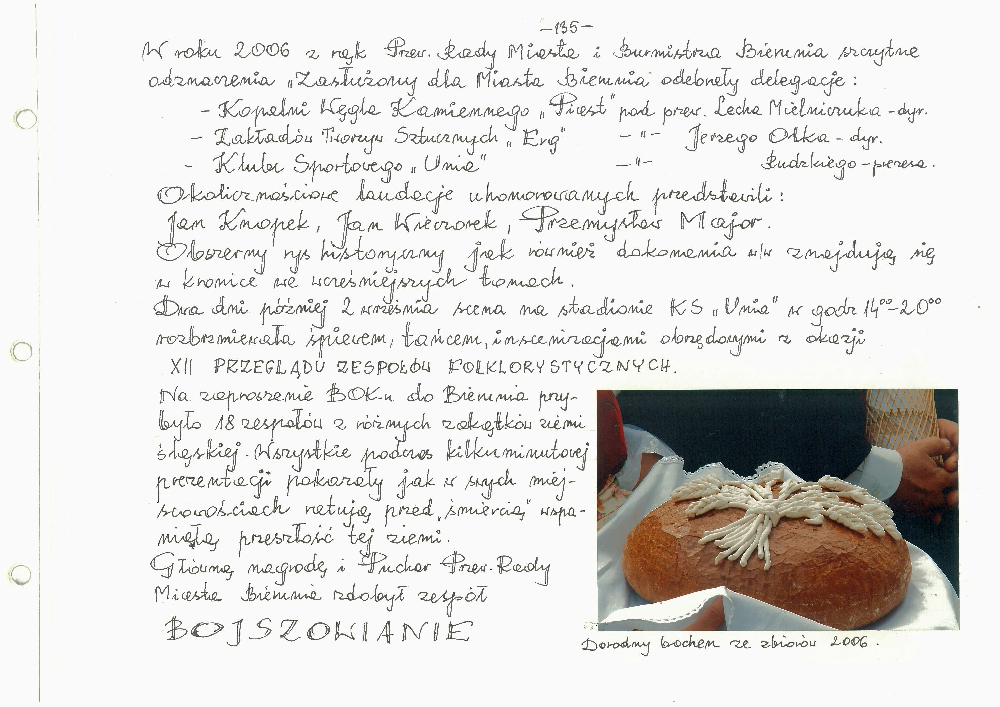 -135-
W roku 2006 z rąk Przew. Rady Miasta i Burmistrza Bierunia szczytne
odznaczenia „Zasłużony dla Miasta Bierunia" odebrały delegacje:
- Kopalni Węgla Kamiennego „Piast" pod przew. Lecha Mielniczuka - dyr.
- Zakładów Tworzyw Sztucznych „Erg" -"- Jerzego Ołka - dyr.
- Klubu Sportowego „Unia" -"- Rudzkiego - prezesa.
Okolicznościowe laudacje uhonorowanych przedstawili:
Jan Knopek, Jan Wieczorek, Przemysław Major.
Obszerny rys historyczny jak również dokonania w/w znajdują się
w kronice we wcześniejszych tomach.
Dwa dni później 2 września scena na stadionie KS „Unia" w godz 14⁰⁰-20⁰⁰
rozbrzmiewała śpiewem, tańcem, inscenizacjami obrzędowymi z okazji
XII PRZEGLĄDU ZESPOŁÓW FOLKLORYSTYCZNYCH.
Na zaproszenie BOK-u do Bierunia przy-
było 18 zespołów z różnych zakątków ziemi
śląskiej. Wszystkie podczas kilkuminutowej
prezentacji pokazały jak w swych miej-
scowościach ratują przed „śmiercią" wspa-
niałą przeszłość tej ziemi.
Główną nagrodę i Puchar Przew. Rady
Miasta Bierunia zdobył zespół
BOJSZOWIANIE
Dorodny bochen ze zbiorów 2006.